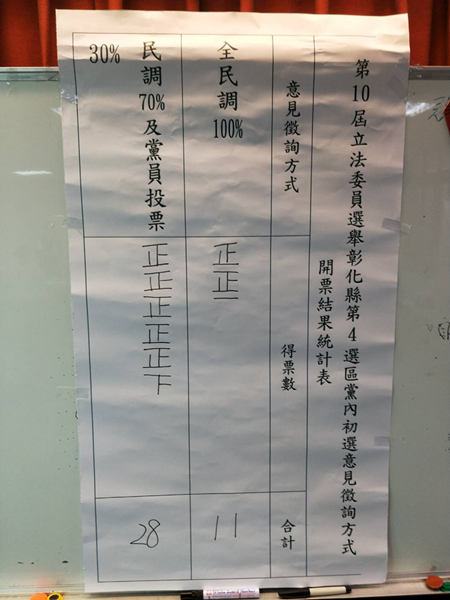 第10屆立法委員選舉彰化縣第4選區黨內初選意見徵詢方式
開票結果統計表
意見徵詢方式
得票數
合計
全民調100%
正正一
11
民調70%及黨員投票
30%
正正正正正下
28